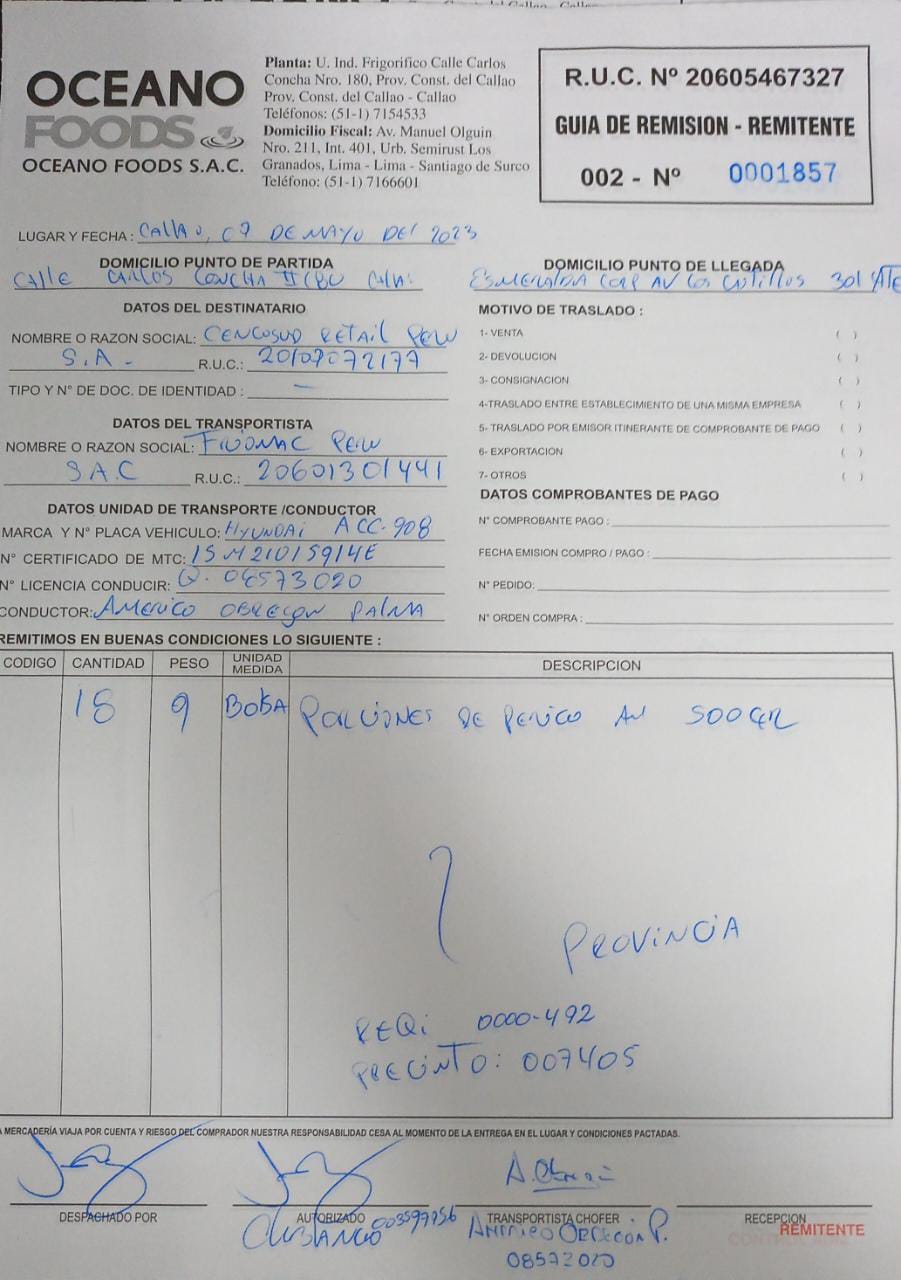 OCEANO
FOODS
OCEANO FOODS S.A.C.
Planta: U. Ind. Frigorifico Calle Carlos
Concha Nro. 180, Prov. Const. del Callao
Prov. Const. del Callao - Callao
Teléfonos: (51-1) 7154533
Domicilio Fiscal: Av. Manuel Olguin
Nro. 211, Int. 401, Urb. Semirust Los
Granados, Lima - Lima - Santiago de Surco
Teléfono: (51-1) 7166601
R.U.C. Nº 20605467327
GUIA DE REMISION - REMITENTE
002 - Nº 0001857
LUGAR Y FECHA : Callao, 07 DE MAYO DEL 2023
DOMICILIO PUNTO DE PARTIDA
Calle CARLOS CONCHA
DOMICILIO PUNTO DE LLEGADA
ESMERALDA CORP AV LOS 301 ATE
DATOS DEL DESTINATARIO
NOMBRE O RAZON SOCIAL: CENCOSUD RETAIL PERU
S.A - R.U.C.: 20109072177
TIPO Y N° DE DOC. DE IDENTIDAD : —
DATOS DEL TRANSPORTISTA
NOMBRE O RAZON SOCIAL: PERU
SAC R.U.C.: 20601301441
DATOS UNIDAD DE TRANSPORTE /CONDUCTOR
MARCA Y N° PLACA VEHICULO: HYUNDAI ACC-908
N° CERTIFICADO DE MTC: 15M21015914E
N° LICENCIA CONDUCIR: Q. 08573020
CONDUCTOR: AMERICO OBREGON PALMA
MOTIVO DE TRASLADO :
1- VENTA ( )
2- DEVOLUCION ( )
3- CONSIGNACION ( )
4-TRASLADO ENTRE ESTABLECIMIENTO DE UNA MISMA EMPRESA ( )
5- TRASLADO POR EMISOR ITINERANTE DE COMPROBANTE DE PAGO ( )
6- EXPORTACION ( )
7- OTROS ( )
DATOS COMPROBANTES DE PAGO
N° COMPROBANTE PAGO :
FECHA EMISION COMPRO / PAGO :
N° PEDIDO:
N° ORDEN COMPRA :
REMITIMOS EN BUENAS CONDICIONES LO SIGUIENTE :
CODIGO CANTIDAD PESO UNIDAD MEDIDA DESCRIPCION
18 9 BOLSA PORCIONES DE PERICO 500GR
PROVINCIA
REQ: 0000-492
PRECINTO: 007405
A MERCADERÍA VIAJA POR CUENTA Y RIESGO DEL COMPRADOR NUESTRA RESPONSABILIDAD CESA AL MOMENTO DE LA ENTREGA EN EL LUGAR Y CONDICIONES PACTADAS.
DESPACHADO POR
AUTORIZADO
003597956
TRANSPORTISTA CHOFER
AMERICO OBREGON P.
08573020
RECEPCION
REMITENTE